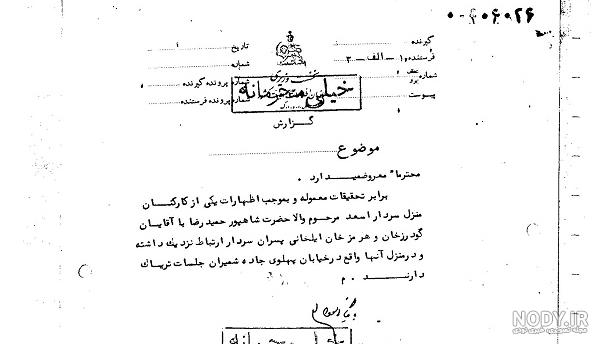 ۰-۶۰۶۰۲۶
گیرنده
تاریخ
فرستنده ۱ - الف - ۳
شماره
نخست وزیری
شماره
شماره پرونده گیرنده
خیلی محرمانه
پیوست
شماره پرونده فرستنده
گزارش
موضوع
محترما" معروضیدارد .
برابر تحقیقات معموله و بموجب اظهارات یکی از کارکنان
منزل سردار اسعد مرحوم والا حضرت شاهپور حمیدرضا با آقایان
گودرزخان و هرمزخان ایلخانی پسران سردار ارتباط نزدیک داشته
و در منزل آنها واقع در خیابان پهلوی جاده شمیران جلسات تریاک
دارند . م
خیلی محرمانه
NODY.IR